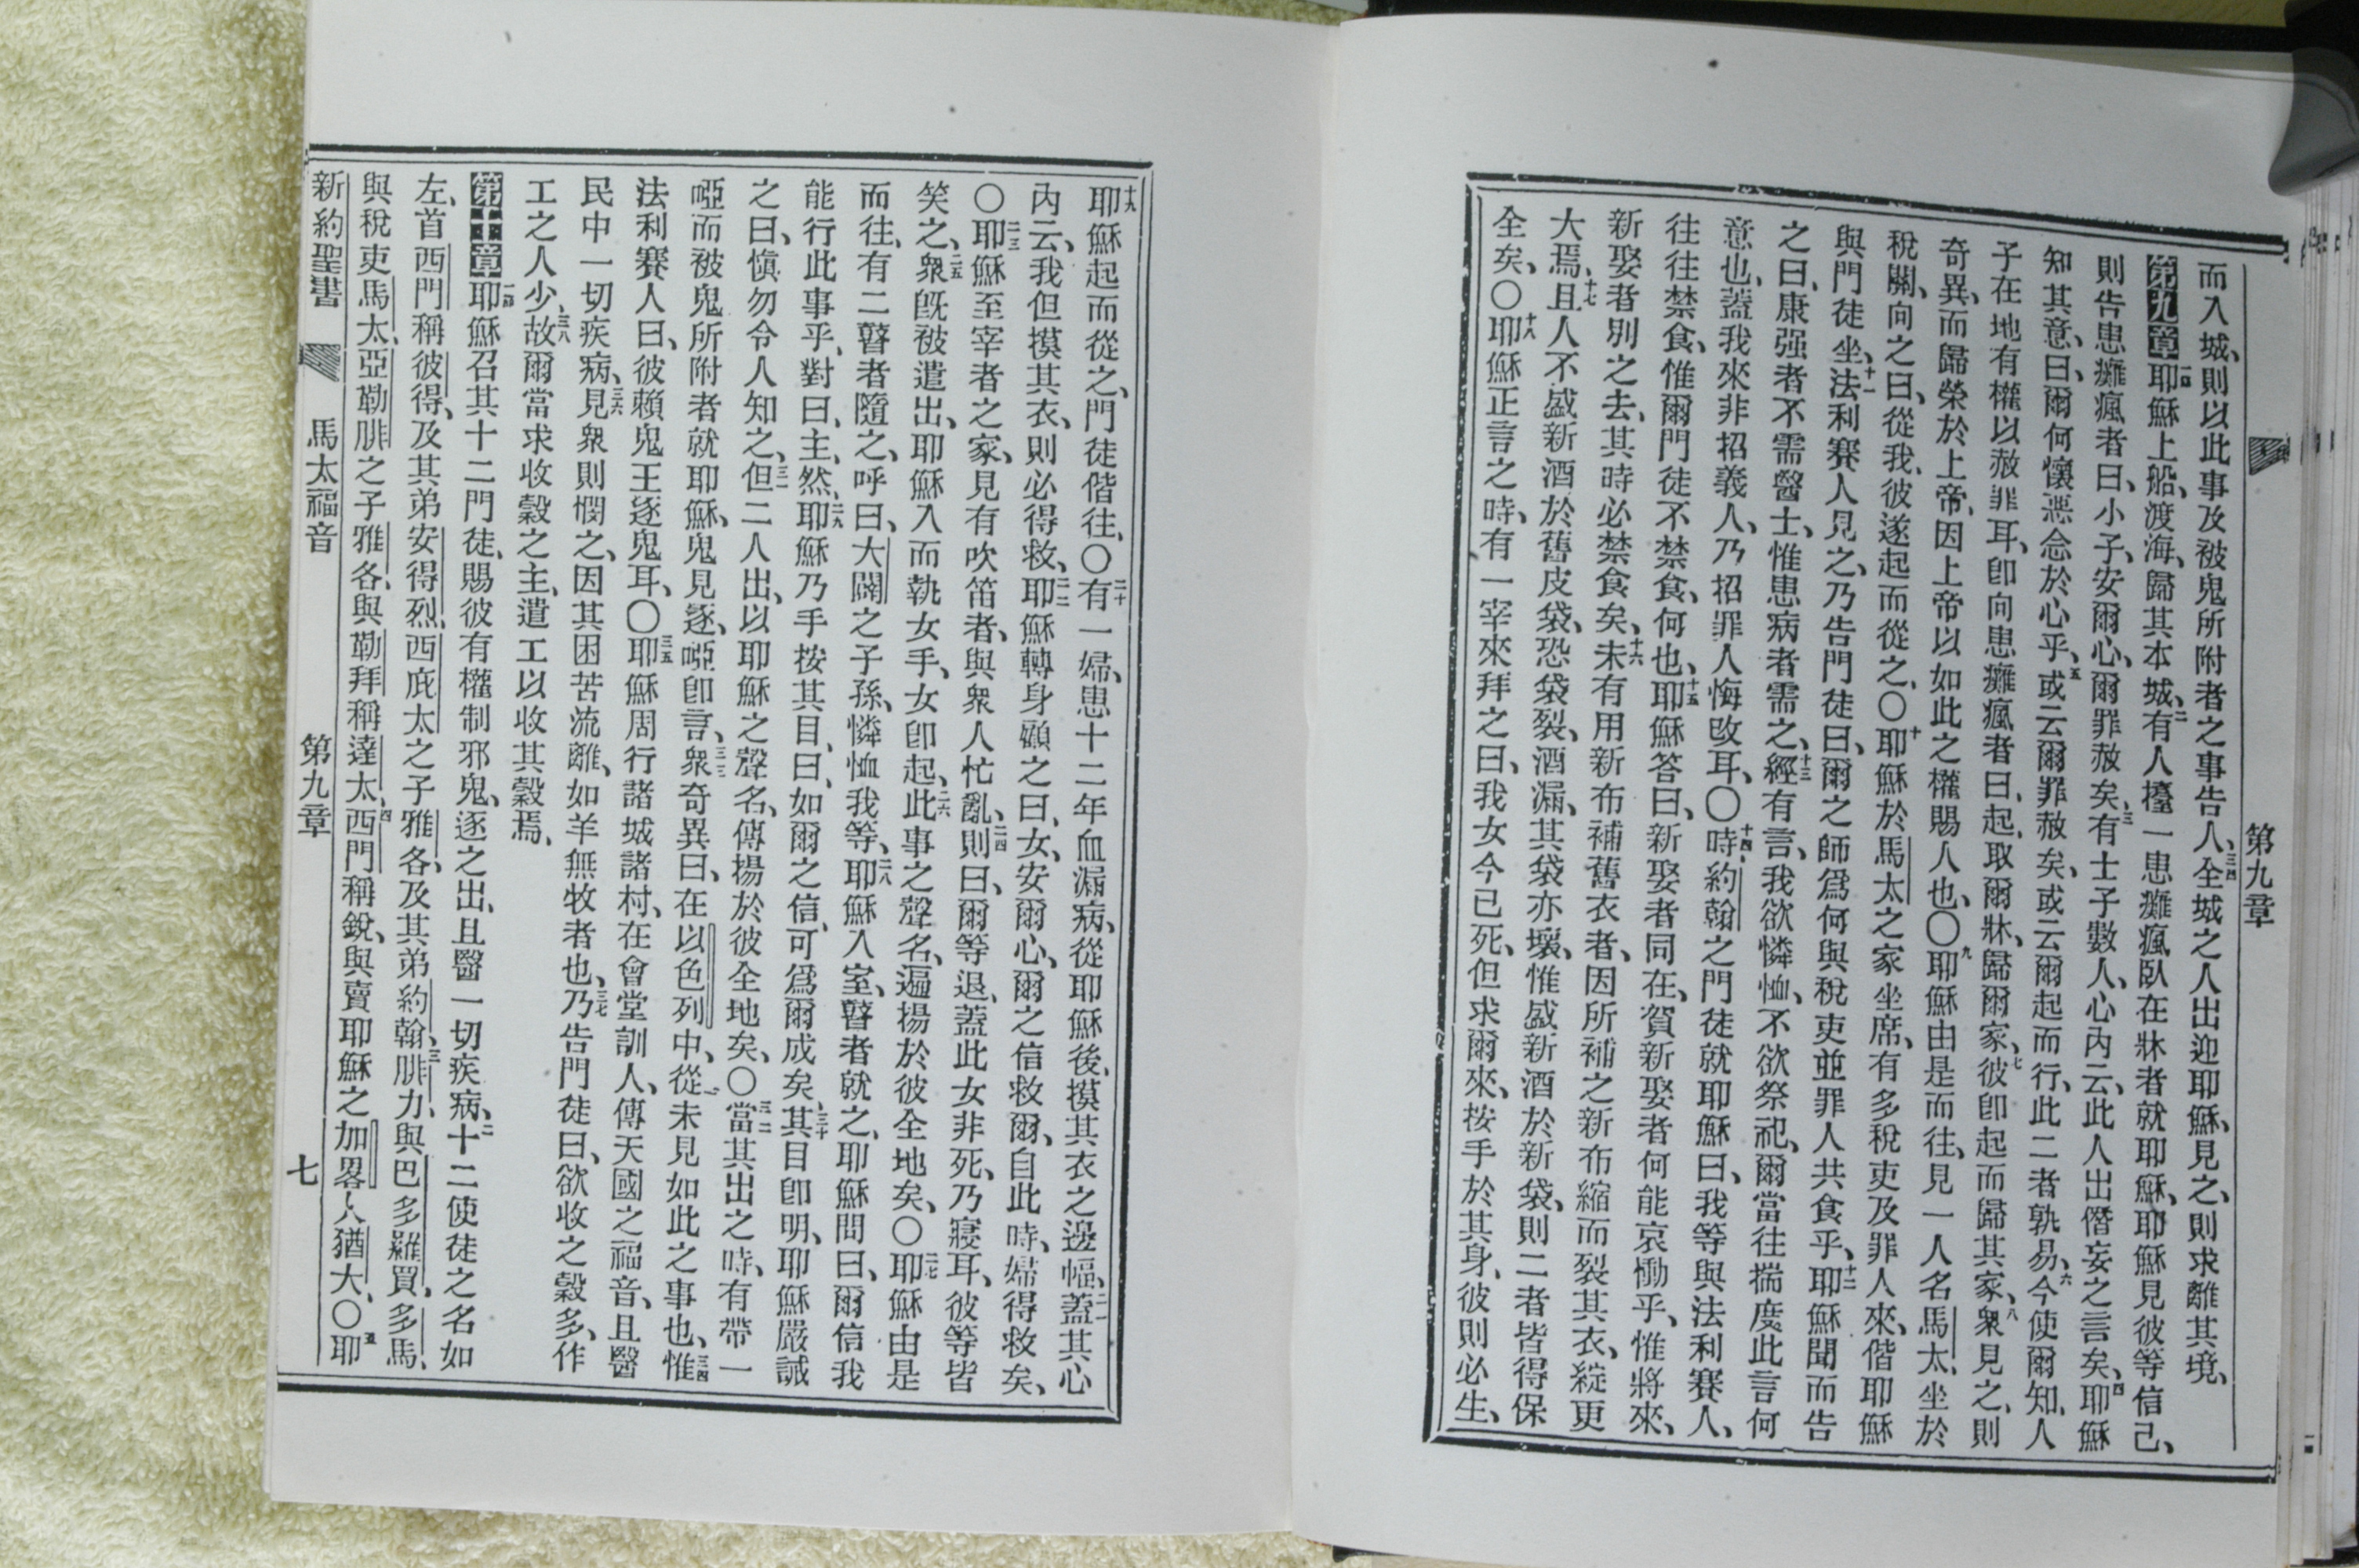 第九章
而入城、則以此事及被鬼所附者之事告人、三四全城之人出迎耶穌、見之、則求離其境、
第九章一耶穌上船、渡海、歸其本城、二有人擡一患癱瘋臥在牀者就耶穌、耶穌見彼等信己、
則告患癱瘋者曰、小子、安爾心、爾罪赦矣、三有士子數人、心內云、此人出僭妄之言矣、四耶穌
知其意、曰、爾何懷惡念於心乎、五或云爾罪赦矣、或云爾起而行、此二者孰易、六今使爾知、人
子在地有權以赦罪耳、卽向患癱瘋者曰、起、取爾牀、歸爾家、七彼卽起而歸其家、八衆見之、則
奇異、而歸榮於上帝、因上帝以如此之權賜人也、〇九耶穌由是而往、見一人名馬太、坐於
稅關、向之曰、從我、彼遂起而從之、〇十耶穌於馬太之家坐席、有多稅吏及罪人來、偕耶穌
與門徒坐、十一法利賽人見之、乃告門徒曰、爾之師爲何與稅吏並罪人共食乎、十二耶穌聞而告
之曰、康强者不需醫士、惟患病者需之、十三經有言、我欲憐恤、不欲祭祀、爾當往揣度此言何
意也、蓋我來非招義人、乃招罪人悔改耳、〇十四時約翰之門徒就耶穌曰、我等與法利賽人、
往往禁食、惟爾門徒不禁食、何也、十五耶穌答曰、新娶者同在、賀新娶者何能哀慟乎、惟將來、
新娶者別之去、其時必禁食矣、十六未有用新布補舊衣者、因所補之新布縮而裂其衣、綻更
大焉、十七且人不盛新酒於舊皮袋、恐袋裂、酒漏、其袋亦壞、惟盛新酒於新袋、則二者皆得保
全矣、〇十八耶穌正言之時、有一宰來拜之曰、我女今已死、但求爾來、按手於其身、彼則必生、
十九耶穌起而從之、門徒偕往、〇二十有一婦、患十二年血漏病、從耶穌後、摸其衣之邊幅、二一蓋其心
內云、我但摸其衣、則必得救、二二耶穌轉身顧之曰、女、安爾心、爾之信救爾、自此時、婦得救矣、
〇二三耶穌至宰者之家、見有吹笛者、與衆人忙亂、二四則曰、爾等退、蓋此女非死、乃寢耳、彼等皆
笑之、二五衆旣被遣出、耶穌入而執女手、女卽起、二六此事之聲名、遍揚於彼全地矣、〇二七耶穌由是
而往、有二瞽者隨之、呼曰、大闢之子孫、憐恤我等、二八耶穌入室、瞽者就之、耶穌問曰、爾信我
能行此事乎、對曰、主、然、二九耶穌乃手按其目、曰、如爾之信、可爲爾成矣、三十其目卽明、耶穌嚴誡
之曰、愼勿令人知之、三一但二人出、以耶穌之聲名、傳揚於彼全地矣、〇三二當其出之時、有帶一
啞而被鬼所附者就耶穌、鬼見逐、啞卽言、三三衆奇異曰、在以色列中、從未見如此之事也、三四惟
法利賽人曰、彼賴鬼王逐鬼耳、〇三五耶穌周行諸城諸村、在會堂訓人、傳天國之福音、且醫
民中一切疾病、三六見衆則憫之、因其困苦流離、如羊無牧者也、三七乃告門徒曰、欲收之穀多、作
工之人少、三八故爾當求收穀之主、遣工以收其穀焉、
第十章一耶穌召其十二門徒、賜彼有權制邪鬼、逐之出、且醫一切疾病、二十二使徒之名如
左、首西門稱彼得、及其弟安得烈、西庇太之子雅各、及其弟約翰、三腓力、與巴多羅買、多馬、
與稅吏馬太、亞勒腓之子雅各、與勒拜稱達太、四西門稱銳、與賣耶穌之加畧人猶大、〇五耶
新約聖書 馬太福音 第九章 七